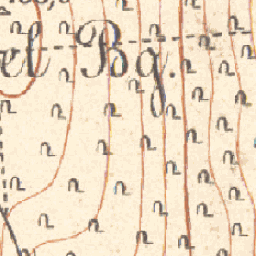 el Bg.